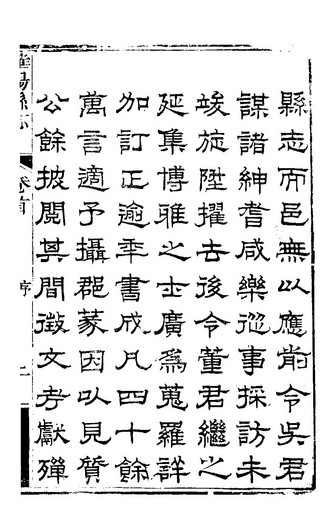 縣志而邑無以應前令吳君
謀諸紳耆咸樂從事採訪未
竣旋陞擢去後令董君繼之
延集博雅之士廣為蒐羅詳
加訂正逾年書成凡四十餘
萬言適予攝郡篆因以見質
公餘披閱其間徵文考獻殫
華陽縣志 卷首 序 二